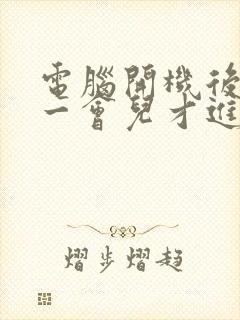 電腦開機後
一會兒才進
熠步熠趨